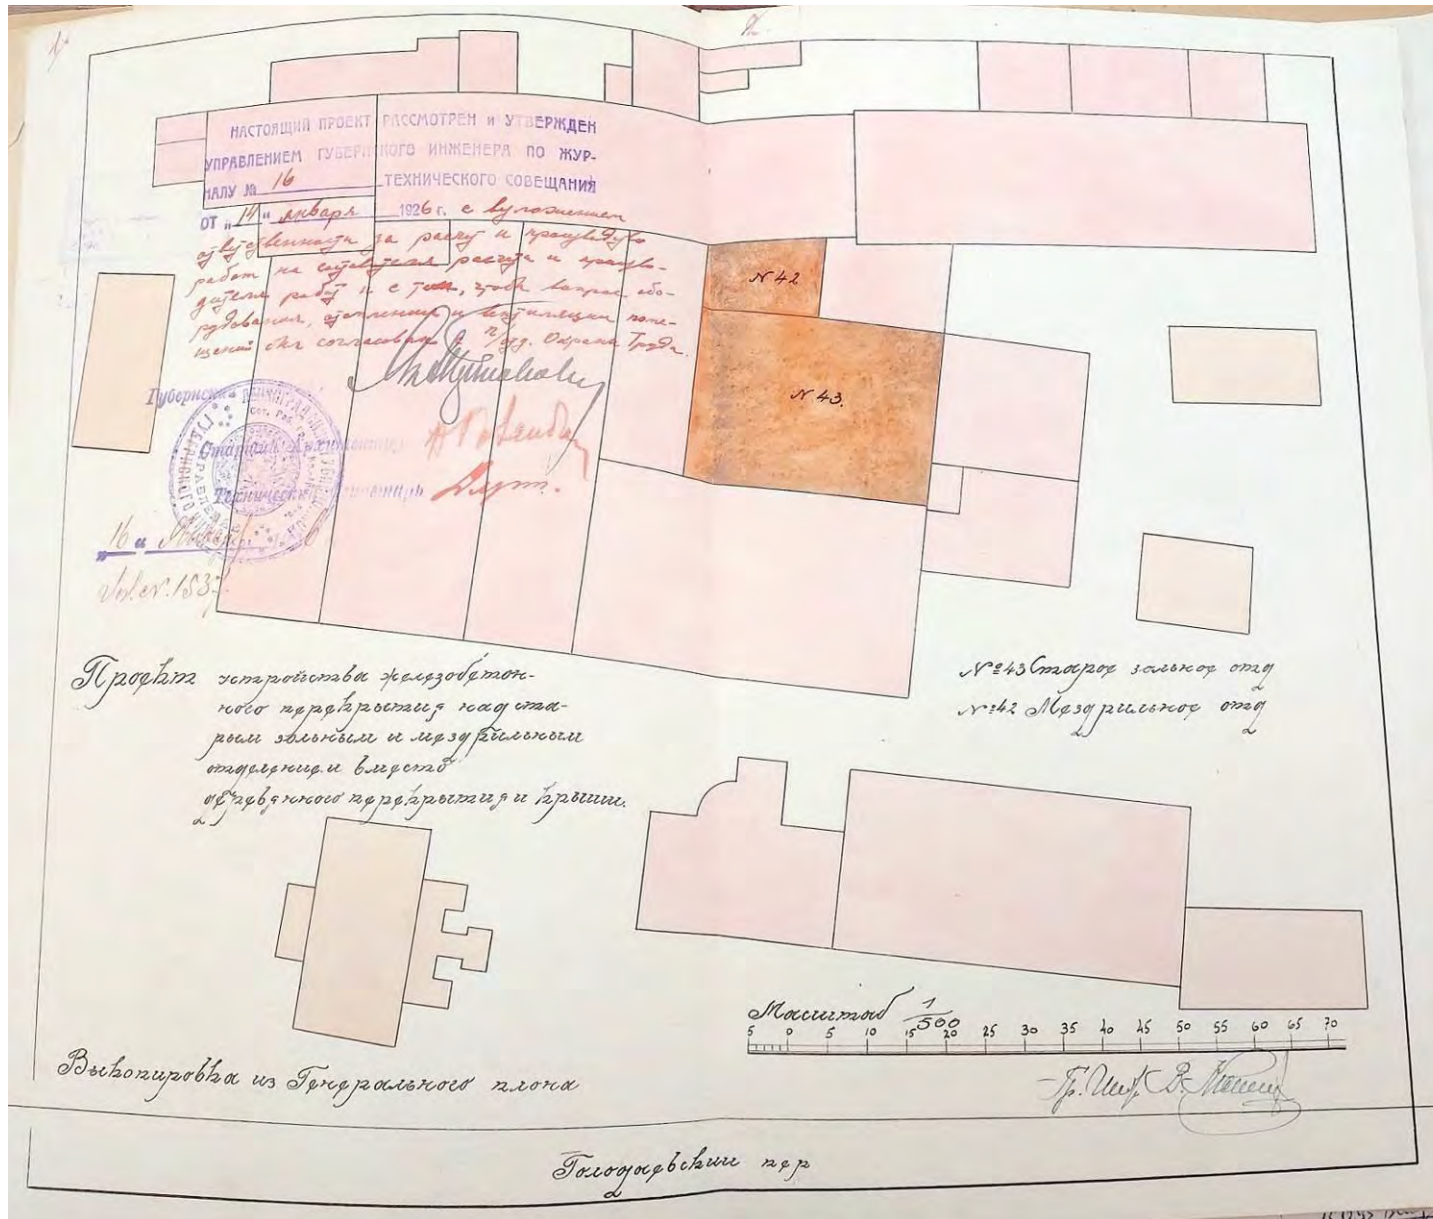 2
НАСТОЯЩИЙ ПРОЕКТ РАССМОТРЕН и УТВЕРЖДЕН
УПРАВЛЕНИЕМ ГУБЕРНСКОГО ИНЖЕНЕРА ПО ЖУР-
НАЛУ № 16 ТЕХНИЧЕСКОГО СОВЕЩАНИЯ
ОТ „14" января 1926 г. с
ответственности за расчет и производство
работ на составителя расчета и произво-
дителя работ и с тем, чтобы вопрос обо-
рудования, отопления и вентиляции поме-
щений был согласован с п/отд. Охраны Труда.
Губернский
Старший Архитектор
Технический Секретарь
16
N 42
N 43.
Проект устройства железобетон-
ного перекрытия над ста-
рым зольным и мездрильным
отделением вместо
деревянного перекрытия и крыши.
№ 43 Старое зольное отд
№ 42 Мездрильное отд
Масштаб 1/500
5 0 5 10 15 20 25 30 35 40 45 50 55 60 65 70
Гр. Инж. В.
Выкопировка из Генерального плана
Голодаевский пер